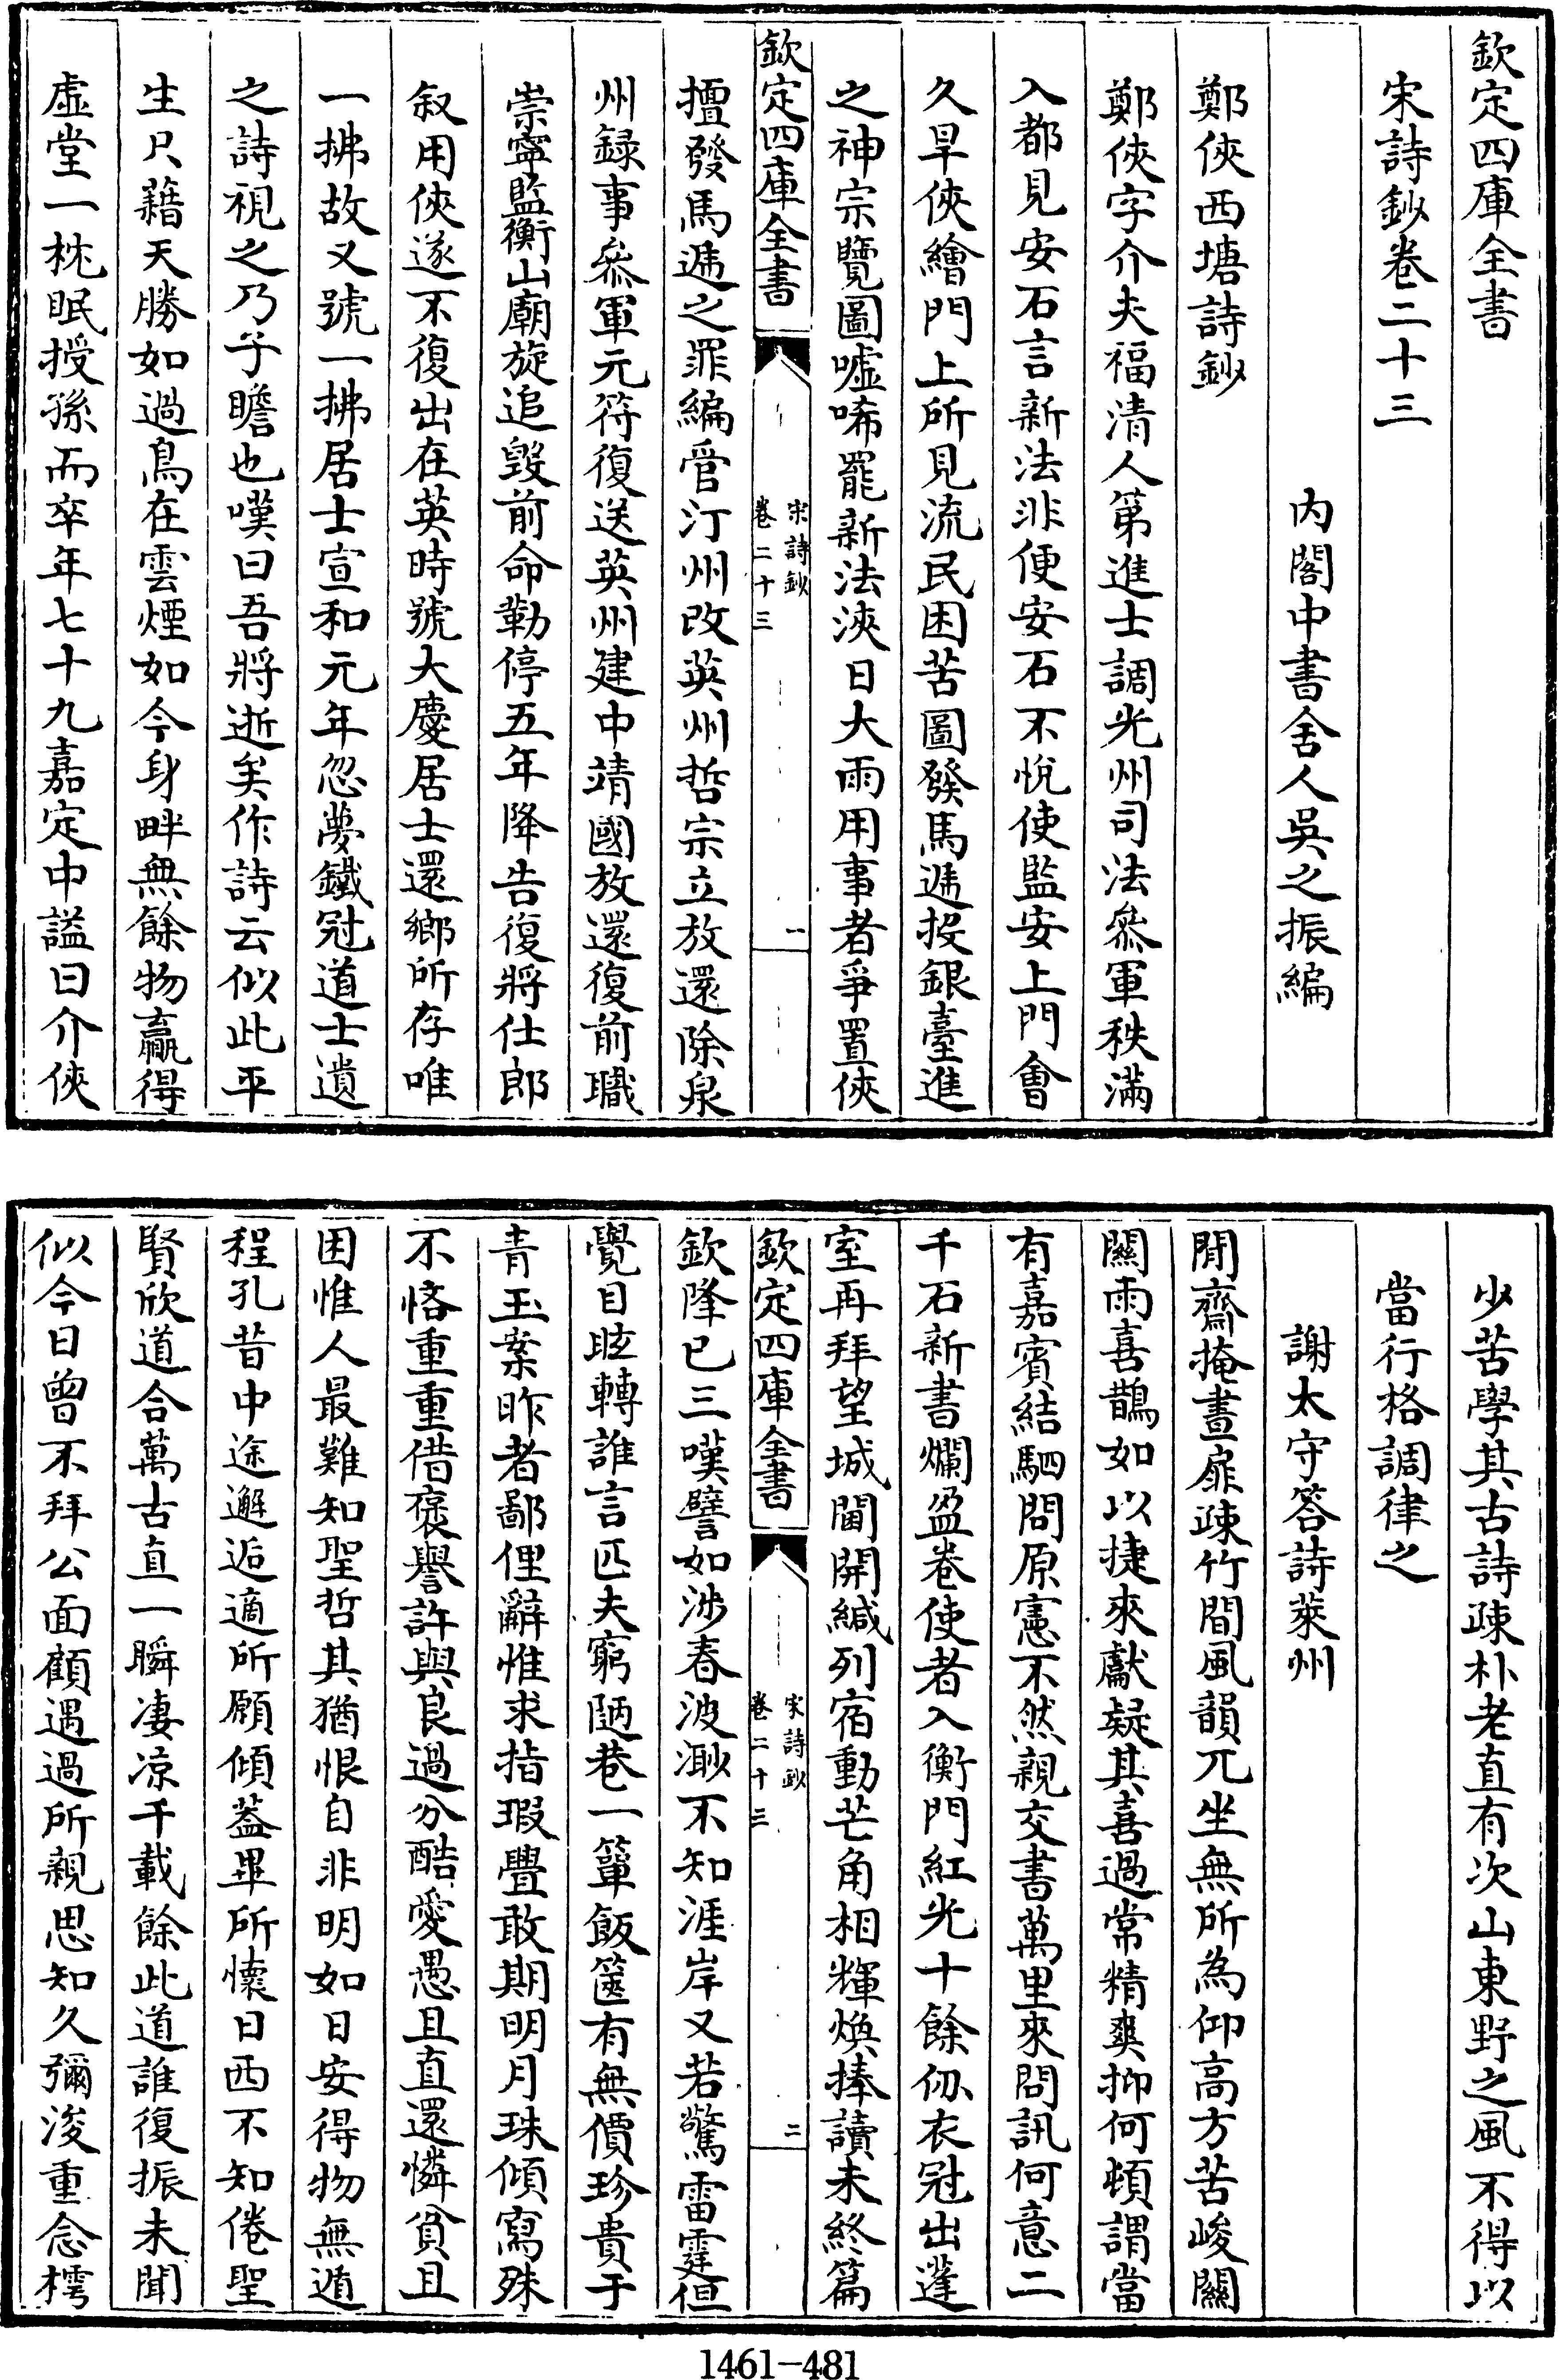 欽定四庫全書
宋詩鈔卷二十三
內閣中書舍人吳之振編
鄭俠西塘詩鈔
鄭俠字介夫福清人第進士調光州司法叅軍秩滿
入都見安石言新法非便安石不悅使監安上門會
久旱俠繪門上所見流民困苦圖發馬遞投銀臺進
之神宗覽圖噓唏罷新法浹日大雨用事者爭置俠
欽定四庫全書
宋詩鈔
卷二十三
一
擅發馬遞之罪編管汀州改英州哲宗立放還除泉
州録事叅軍元符復送英州建中靖國放還復前職
崇寧監衡山廟旋追毀前命勒停五年降告復將仕郎
叙用俠遂不復出在英時號大慶居士還鄉所存唯
一拂故又號一拂居士宣和元年忽夢鐵冠道士遺
之詩視之乃子瞻也嘆曰吾將逝矣作詩云似此平
生只藉天勝如過鳥在雲煙如今身畔無餘物贏得
虛堂一枕眠授孫而卒年七十九嘉定中謚曰介俠
少苦學其古詩疎朴老直有次山東野之風不得以
當行格調律之
謝太守答詩萊州
閒齋掩晝扉疎竹間風韻兀坐無所為仰高方苦峻闗
闗雨喜鵲如以捷來獻疑其喜過常精爽抑何頓謂當
有嘉賓結駟問原憲不然親交書萬里來問訊何意二
千石新書爛盈卷使者入衡門紅光十餘仞衣冠出蓬
室再拜望城闉開緘列宿動芒角相輝煥捧讀未終篇
欽定四庫全書
宋詩鈔
卷二十三
二
欽降已三嘆譬如涉春波渺不知涯岸又若驚雷霆但
覺目眩轉誰言匹夫窮陋巷一簞飯篋有無價珍貴于
青玉案昨者鄙俚辭惟求指瑕舋敢期明月珠傾寫殊
不悋重重借褒譽許與良過分酷愛愚且直還憐貧且
困惟人最難知聖哲其猶恨自非明如日安得物無遁
程孔昔中途邂逅適所願傾葢畢所懷日西不知倦聖
賢欣道合萬古直一瞬凄凉千載餘此道誰復振未聞
似今日曾不拜公面顧遇過所親思知久彌浚重念樗
1461-481